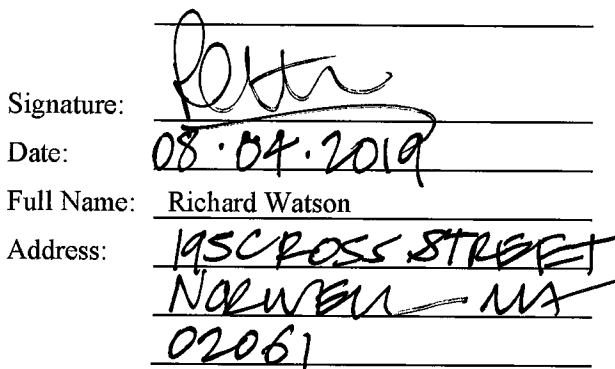 Signature:
Date: 08.04.2019
Full Name: Richard Watson
Address: 195 CROSS STREET
NORWELL MA
02061